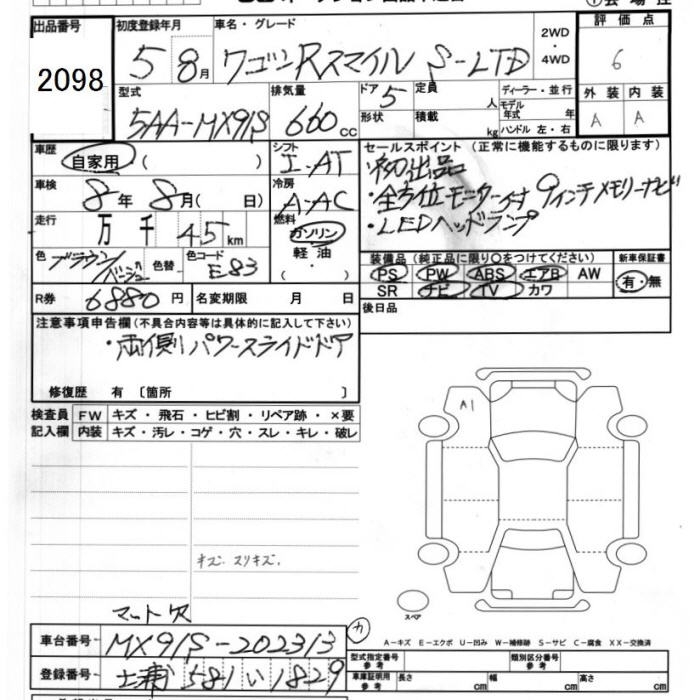 出品番号 初度登録年月 車名・グレード 2WD・4WD 評価点
2098 5 8月 ワゴンRスマイル S-LTD 6
型式 排気量 ドア 5 定員 人 ディーラー・並行 外装 内装
5AA-MX91S 660cc 形状 積載 kg モデル年式 年 ハンドル 左・右 A A
車歴 自家用 ( ) シフト I-AT セールスポイント (正常に機能するものに限ります)
・初出品
車検 8年 8月( 日) 冷房 A-AC ・全方位モニター付 9インチメモリーナビ
走行 万 千 45km 燃料 ガソリン ・LEDヘッドランプ
軽油・( )
色 ブラウン/ベージュ 色替 色コード E83 装備品 (純正品に限り○をつけてください) 新車保証書
PS PW ABS エアB AW 有・無
R券 6880円 名変期限 月 日 SR ナビ TV カワ
後日品
注意事項申告欄 (不具合内容等は具体的に記入して下さい)
・両側パワースライドドア
修復歴 有 〔箇所 〕
検査員 FW キズ・飛石・ヒビ割・リペア跡・×要
記入欄 内装 キズ・汚レ・コゲ・穴・スレ・キレ・破レ
A1
キズ スリキズ
スペア
マット欠
カ
A-キズ E-エクボ U-凹み W-補修跡 S-サビ C-腐食 XX-交換済
車台番号 MX91S-202313 型式指定番号 参考 類別区分番号 参考
登録番号 土浦 581 い 1829 車庫証明用 参考 長さ cm 幅 cm 高さ cm